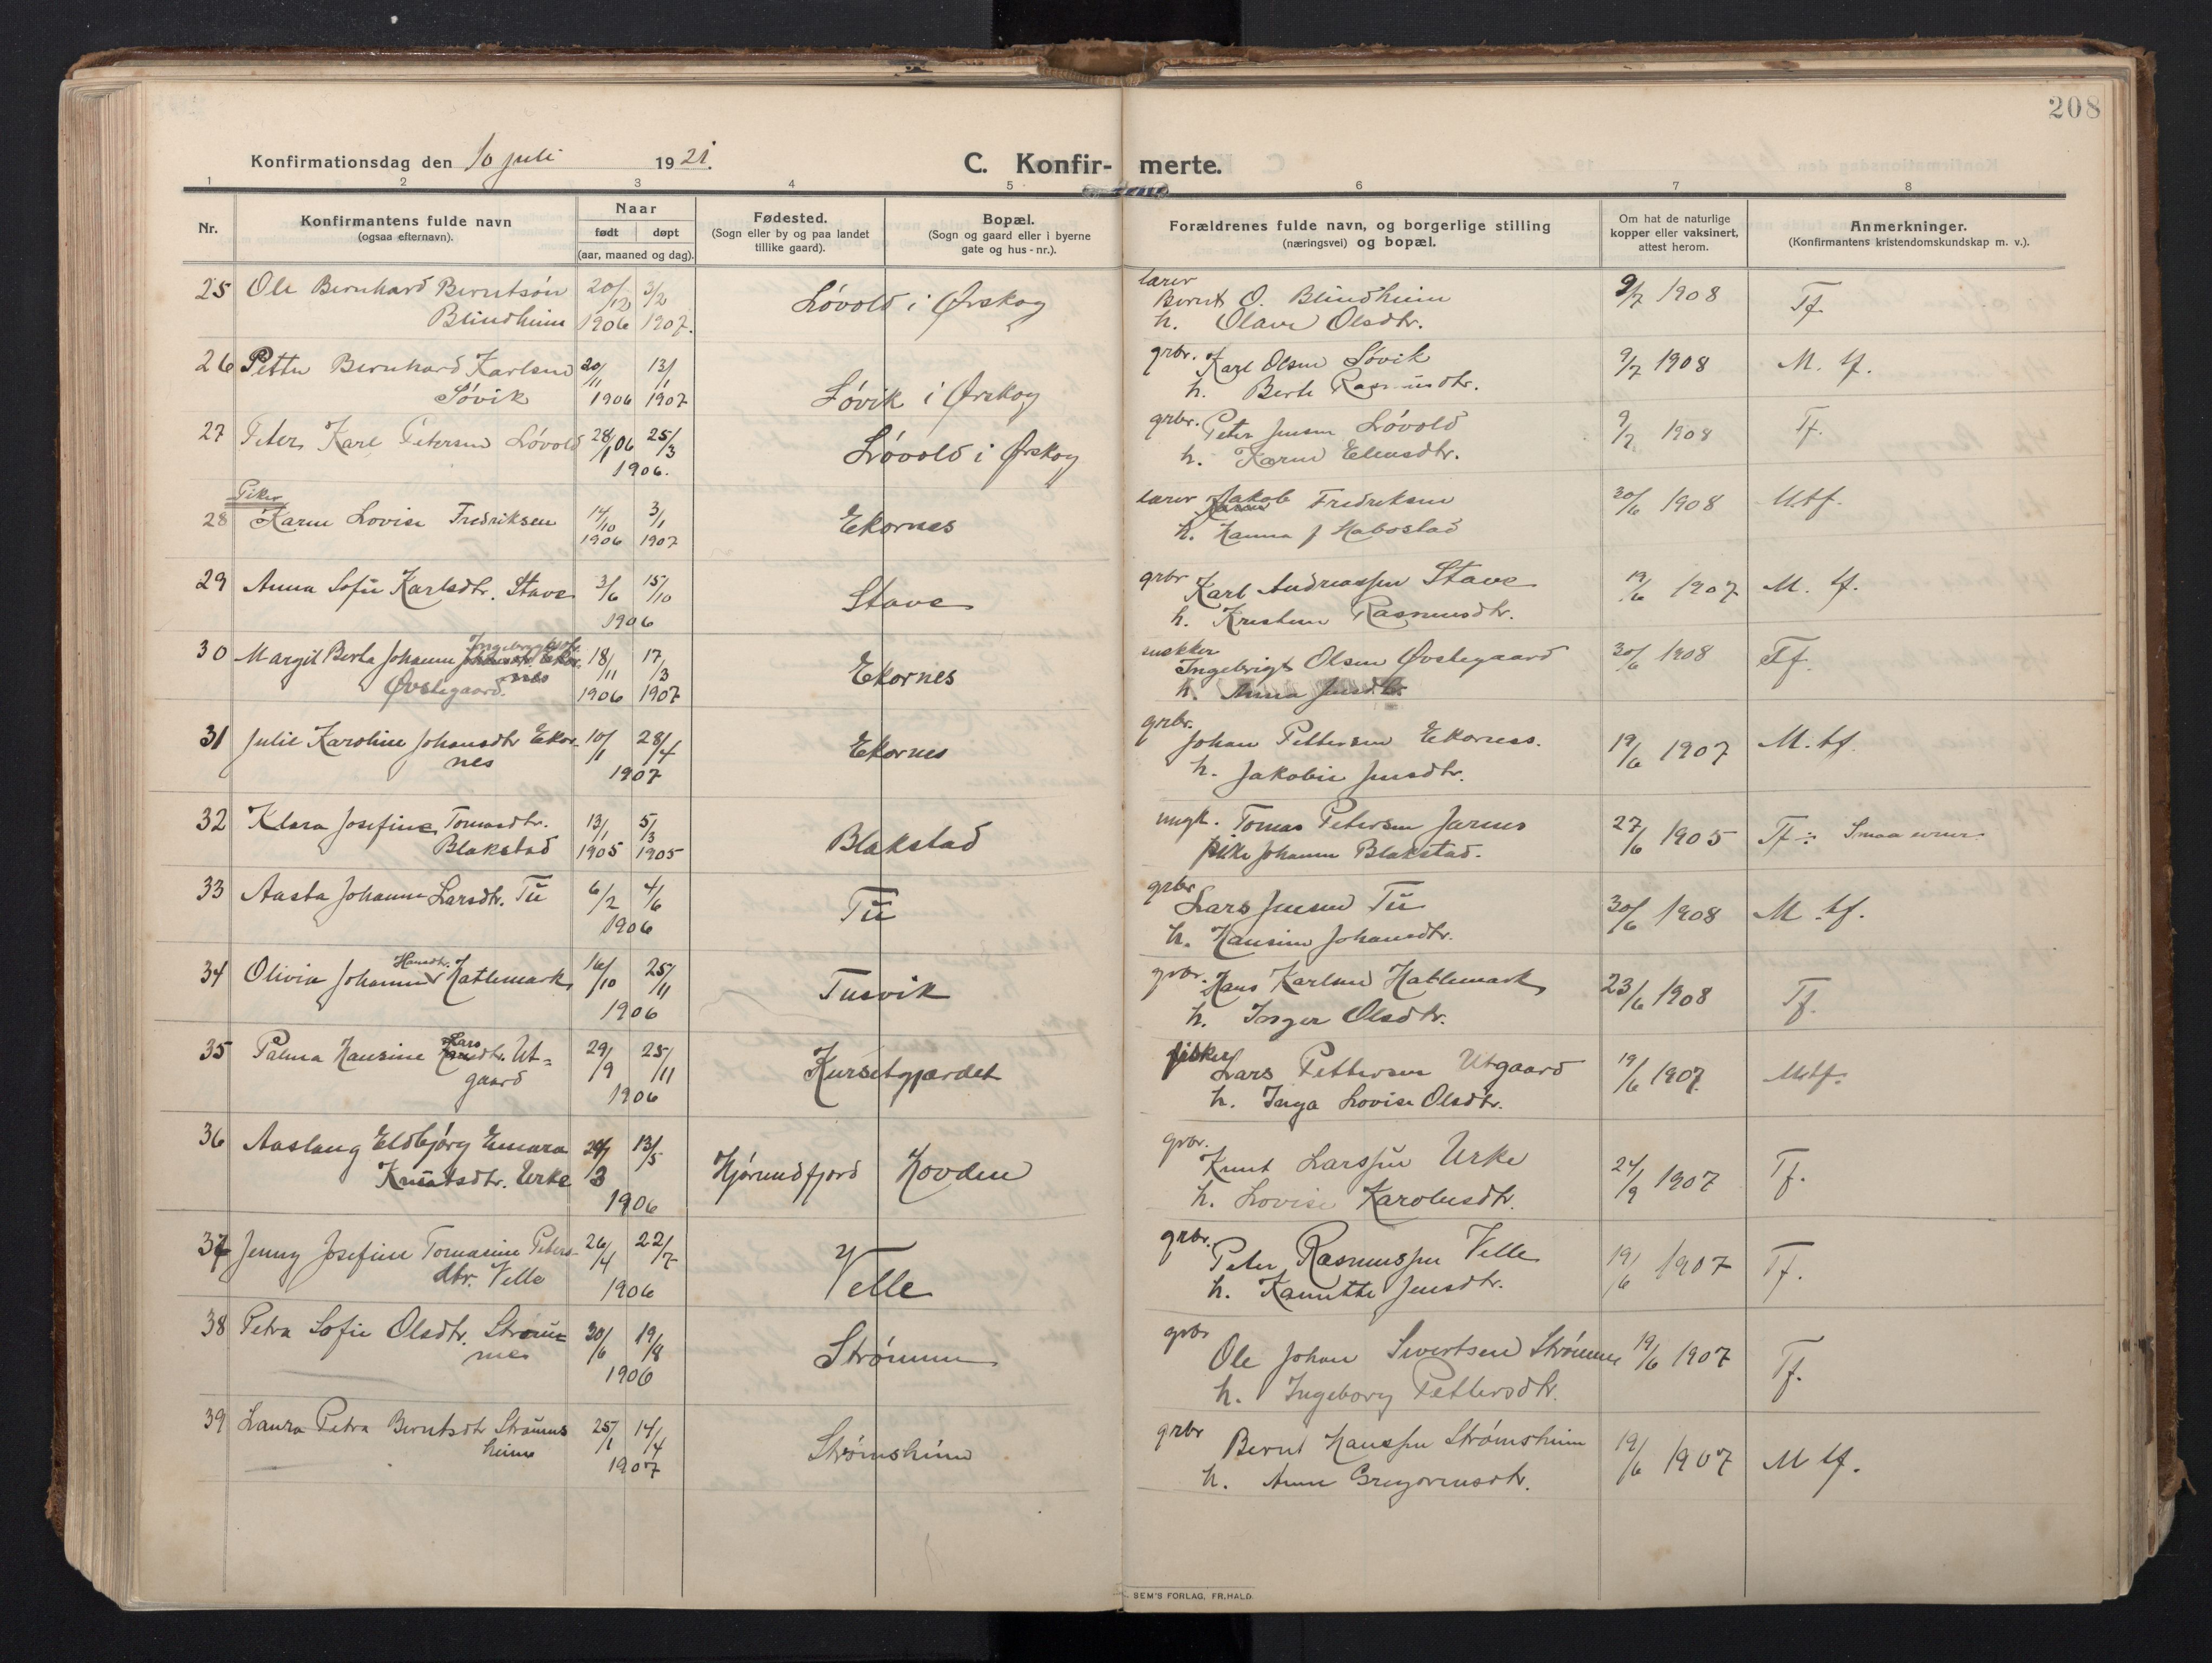 208
Konfirmationsdag den 10 juli 1921.
C. Konfir- merte.
1 2 3 4 5 6 7 8
Nr.
Konfirmantens fulde navn
(ogsaa efternavn).
Naar
født døpt
(aar, maaned og dag).
Fødested.
(Sogn eller by og paa landet
tillike gaard).
Bopæl.
(Sogn og gaard eller i byerne
gate og hus-nr.).
Forældrenes fulde navn, og borgerlige stilling
(næringsvei) og bopæl.
Om hat de naturlige
kopper eller vaksinert,
attest herom.
Anmerkninger.
(Konfirmantens kristendomskundskap m. v.).
25 Ole Bernhard Berntsøn 20/12 3/2 Løvold i Ørskog lærer Bernt O. Blindheim 9/7 1908 Tf.
Blindheim 1906 1907. h. Olave Olsdtr.
26 Petter Bernhard Karlsen 20/11 13/1 Søvik i Ørskog grbr. Karl Olsen Søvik 9/7 1908 M. tf.
Søvik 1906 1907 h. Berte Rasmusdtr.
27 Peter Karl Petersen Løvold 28/1 06 25/3 Løvold i Ørskog grbr. Peter Jensen Løvold 9/7 1908 Tf.
1906. h. Karen Eliasdtr.
Piker
28 Karen Lovise Fredriksen 14/10 3/1 Ekornes lærer Jakob Fredriksen 30/6 1908 Mtf.
1906 1907 h. Hanna f Habostad
29 Anna Sofie Karlsdtr. Stave 3/6 15/10 Stave grbr Karl Andreassen Stave 19/6 1907 M. tf.
1906 h. Kristine Rasmusdtr.
30 Margit Berta Johanne Ingebrigtsdtr. Ekor- 18/11 17/3 Ekornes snekker Ingebrigt Olsen Øvstegaard 30/6 1908 Tf.
nes
Øvstegaard. 1906 1907 h. Anna Jensdtr.
31 Julie Karoline Johansdtr Ekor- 10/1 28/4 Ekornes grbr. Johan Pettersen Ekornes. 19/6 1907 M. tf.
nes 1907 h. Jakobie Jensdtr.
32 Klara Josefine Tomasdtr. 13/1 5/3 Blakstad ungk. Tomas Petersen Jarnes 27/6 1905 Tf ÷ Smaa evner
Blakstad 1905 1905 pike Johanne Blakstad.
33 Aasta Johanne Larsdtr. Tu 6/2 4/6 Tu grbr Lars Jensen Tu 30/6 1908 M. tf.
1906 h. Hansine Johansdtr.
34 Olivia Johanne Hansdtr. Hatlemark 16/10 25/11 Tusvik grbr. Hans Karlsen Hatlemark 23/6 1908 Tf.
1906 h. Inger Olsdtr.
35 Palma Hansine Larsdtr. Ut- 29/9 25/11 Kursetgjærdet fisker Lars Pettersen Utgaard 19/6 1907 Mtf.
gaard 1906 h. Inga Lovise Olsdtr.
36 Aaslaug Eldbjørg Emara 24/3 13/5 Hjørundfjord Hovden grbr. Knut Larssen Urke 24/9 1907 Tf.
Knutsdtr. Urke 1906 h. Lovise Karolusdtr.
37 Jenny Josefine Tomasine Peters- 26/4 22/7 Velle grbr. Peter Rasmussen Velle 19/6 1907 Tf.
dtr. Velle 1906 h. Kanutte Jensdtr.
38 Petra Sofie Olsdtr. Strøm- 30/6 19/8 Strømmen grbr Ole Johan Sivertsen Strømme 19/6 1907 Tf.
mes 1906 h. Ingeborg Pettersdtr.
39 Laura Petra Berntsdtr Strøms 25/1 14/4 Strømsheim grbr Bernt Hanssen Strømsheim 19/6 1907 M tf.
heim 1907 h. Anne Gregoriusdtr.
SEM'S FORLAG, FR.HALD